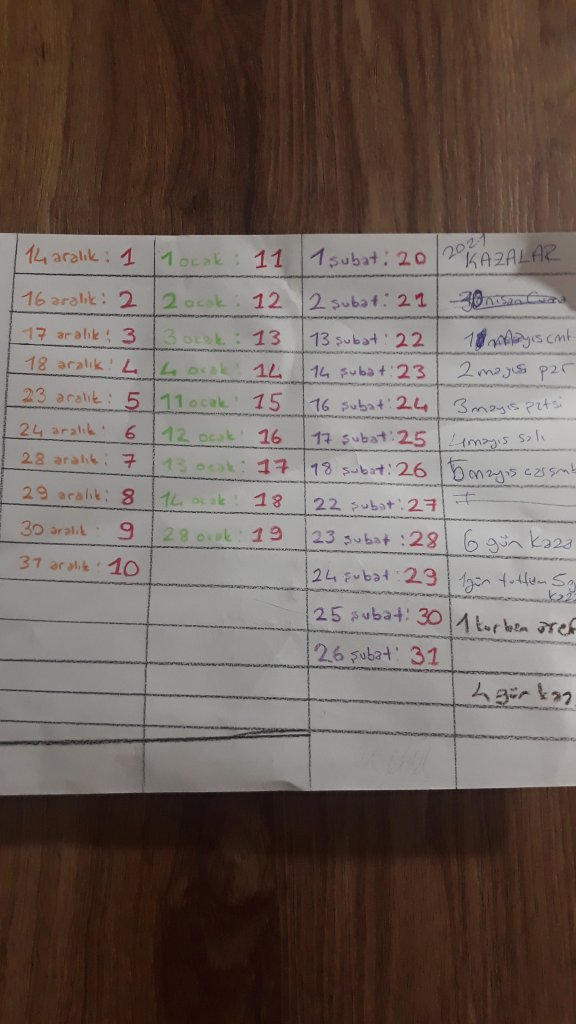 14 aralık: 1
16 aralık: 2
17 aralık: 3
18 aralık: 4
23 aralık: 5
24 aralık: 6
28 aralık: 7
29 aralık: 8
30 aralık: 9
31 aralık: 10
1 ocak: 11
2 ocak: 12
3 ocak: 13
4 ocak: 14
11 ocak: 15
12 ocak: 16
13 ocak: 17
14 ocak: 18
28 ocak: 19
1 şubat: 20
2 şubat: 21
13 şubat: 22
14 şubat: 23
16 şubat: 24
17 şubat: 25
18 şubat: 26
22 şubat: 27
23 şubat: 28
24 şubat: 29
25 şubat: 30
26 şubat: 31
2021 KAZALAR
30 nisan Cuma
1 mayıs cmt
2 mayıs pzr
3 mayıs pztsi
4 mayıs salı
5 mayıs
6 gün kaza
1 gün tuttum
1 kurban
4 gün